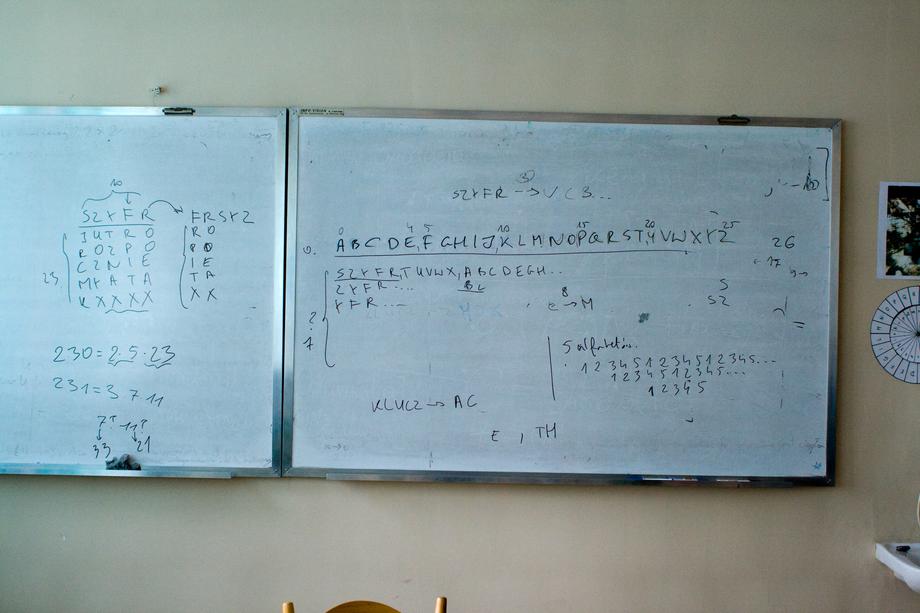 10
SZYFR FRSYZ
JUTRO RO
ROZPO PO
CZNIE IE
MYATA TA
KXXXX XX
23
230 = 2·5·23
231 = 3 7 11
7? 11?
33 21
SZYFR → V C B...
0 4 5 10 15 20 25
0. ABCDE,FGHIJ,KLMNOPQRSTUVWXYZ 26
SZYFRTUVWX,ABCDEGH... 17
ZYFR...
YFR...
8
e → M
S
SZ
?
5 alfabetów.
123451234512345...
1234512345...
12345
KLUCZ → AC
E, TH